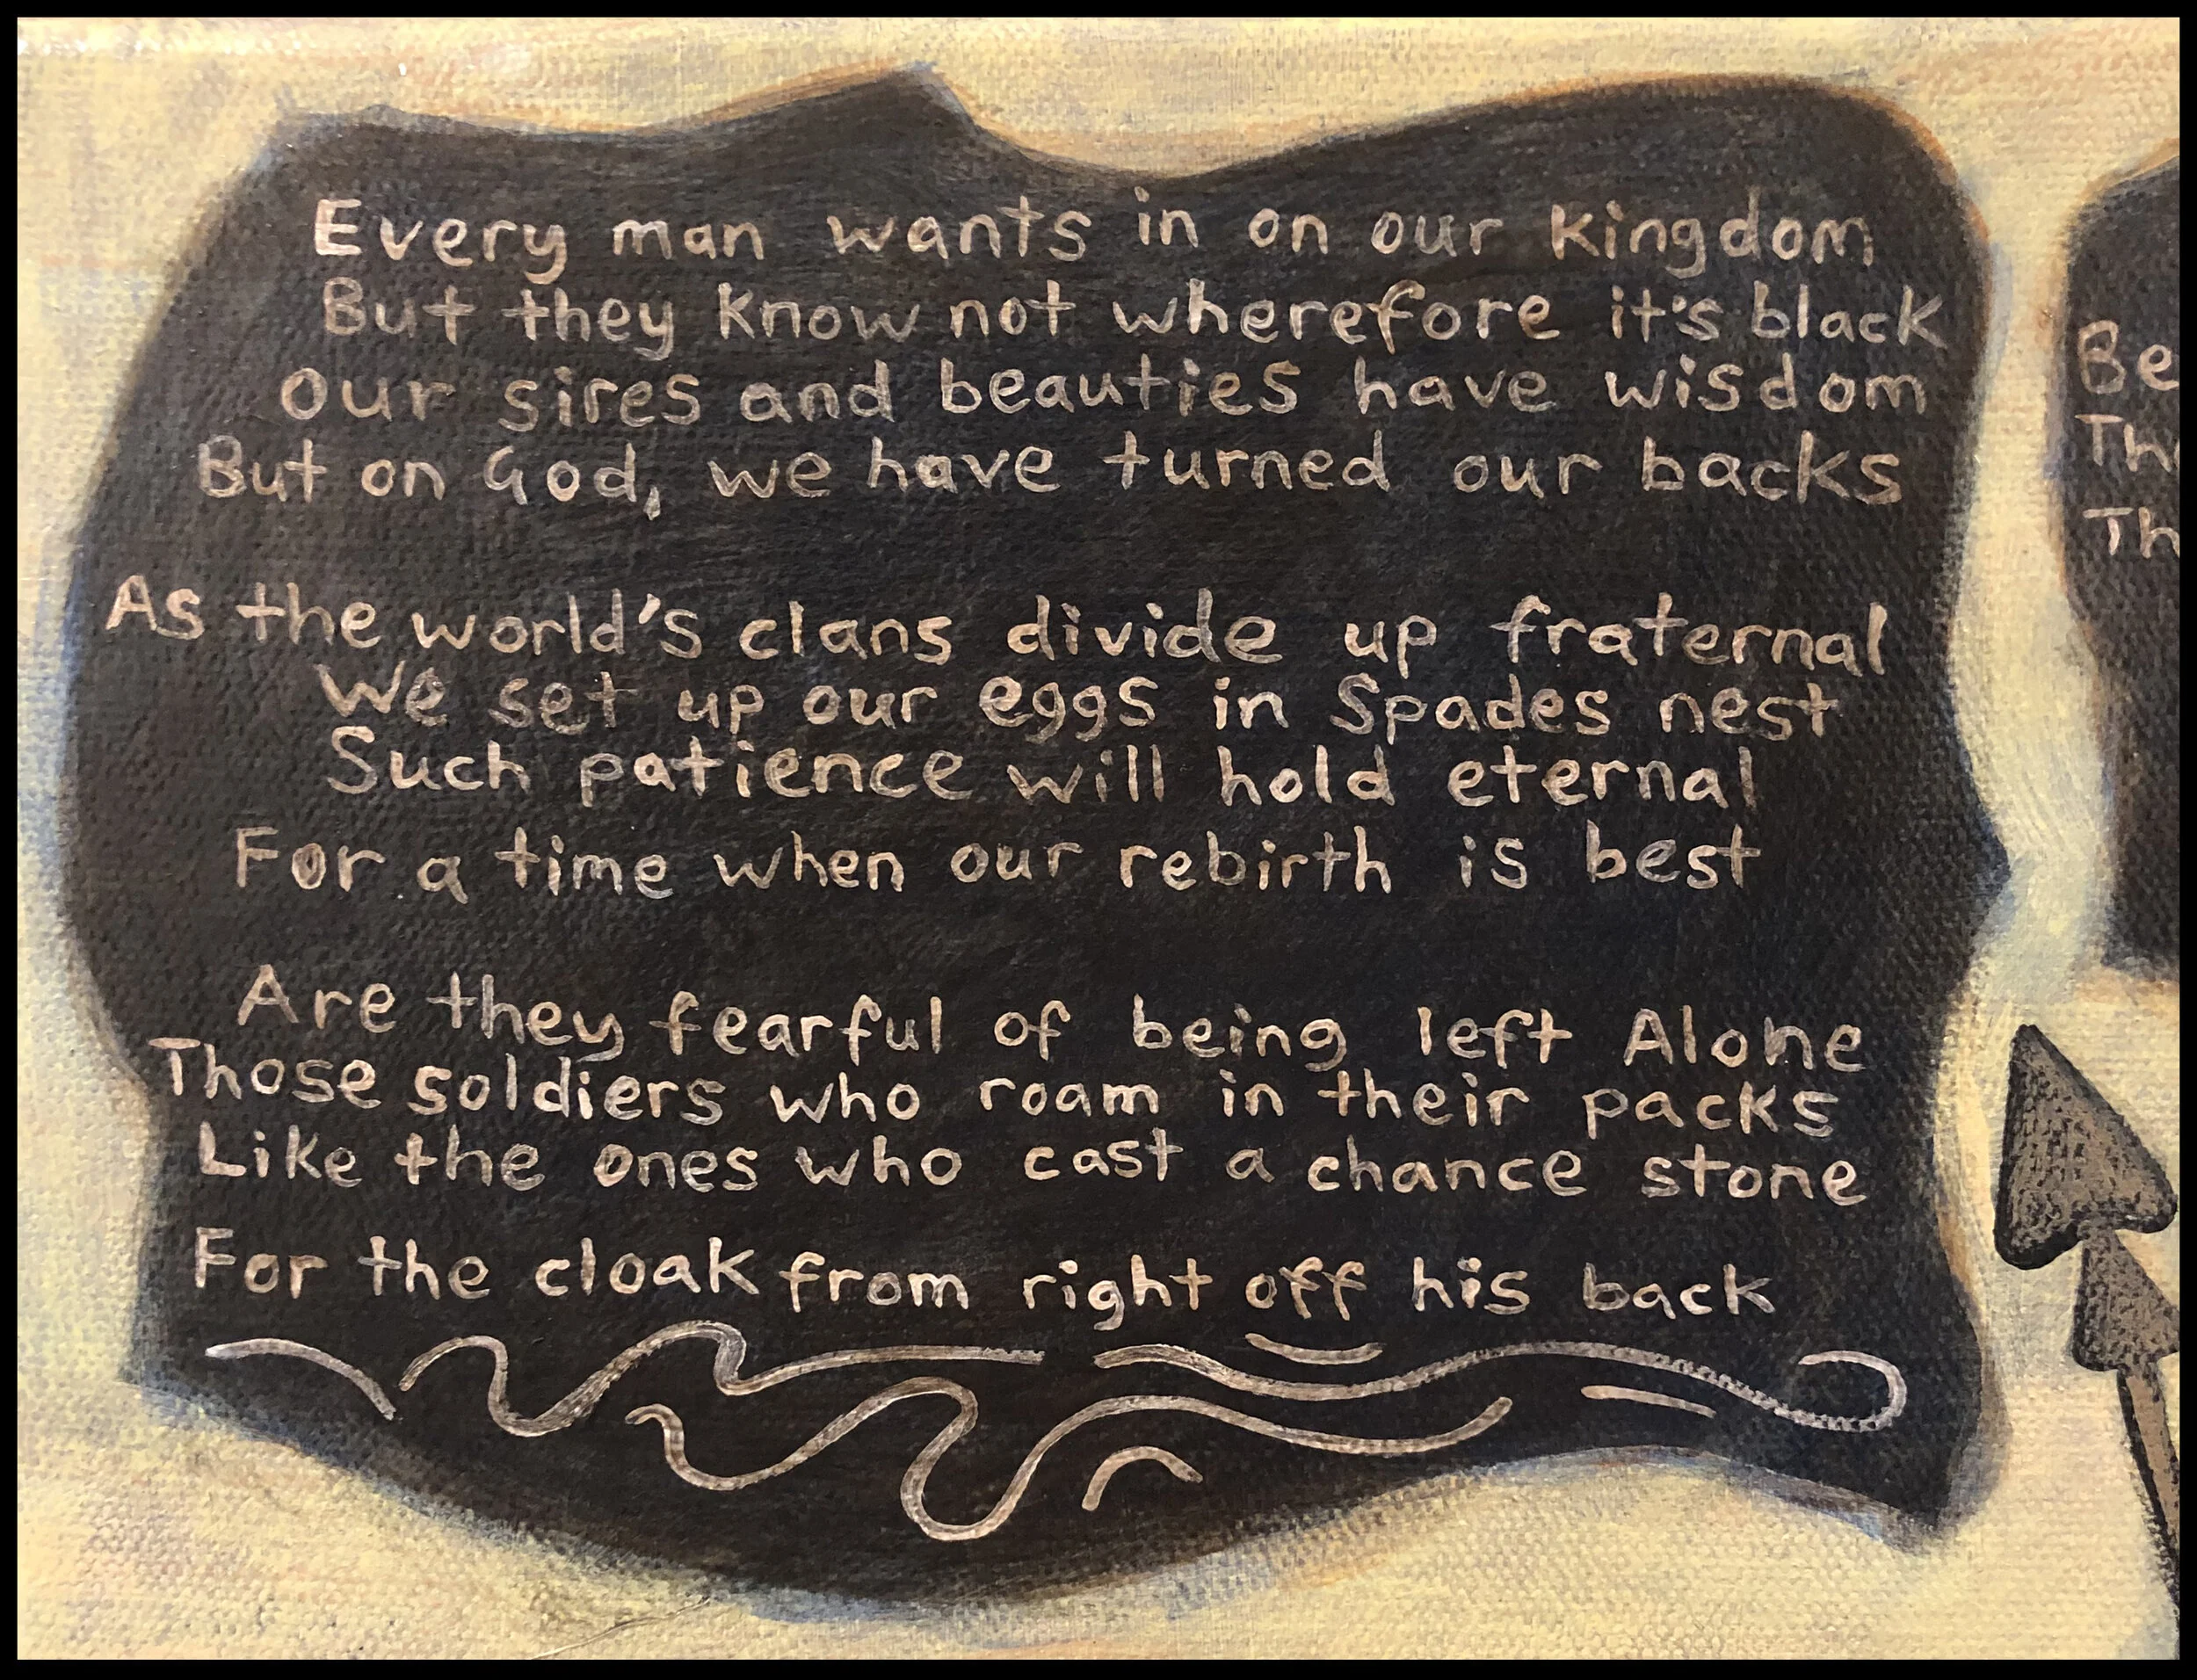 Every man wants in on our Kingdom
But they know not wherefore it's black
Our sires and beauties have wisdom
But on God, we have turned our backs
As the world's clans divide up fraternal
We set up our eggs in Spades nest
Such patience will hold eternal
For a time when our rebirth is best
Are they fearful of being left Alone
Those soldiers who roam in their packs
Like the ones who cast a chance stone
For the cloak from right off his back
Be
Th
Th